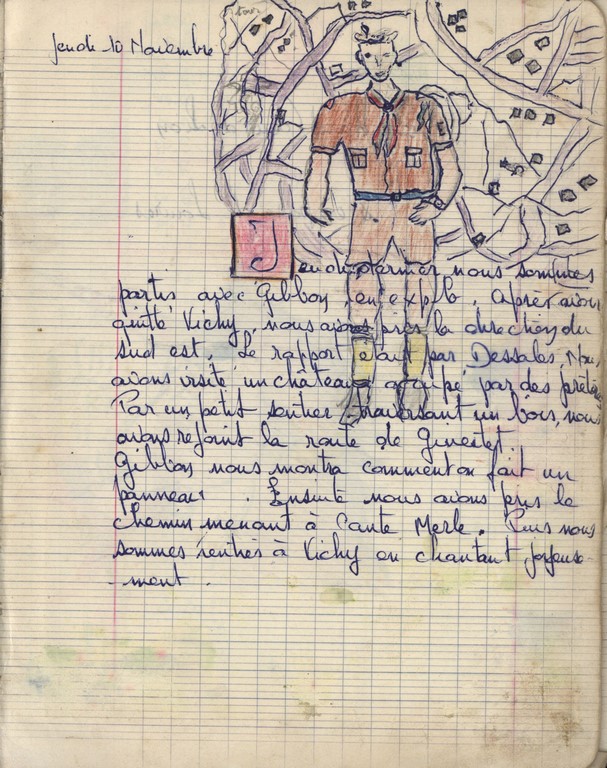 Jeudi 10 Novembre
Jeudi dernier, nous sommes
partis avec Gibbon, en explo. Après avoir
quitté Vichy, nous avons pris la direction du
sud est. Le rapport était par Dessales. Nous
avons visité un château occupé par des prêtres
Par un petit sentier traversant un bois, nous
avons rejoint la route de
Gibbon nous montra comment on fait un
panneau. Ensuite nous avons pris le
chemin menant à Cante Merle. Puis nous
sommes rentrés à Vichy en chantant joyeuse-
-ment.